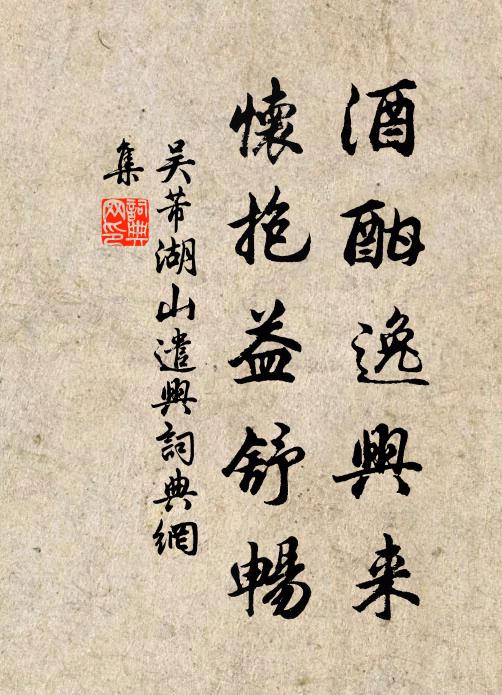 酒酣逸興来
懷抱益舒暢
吴芾湖山遣興詞典網
集
詞典
网印